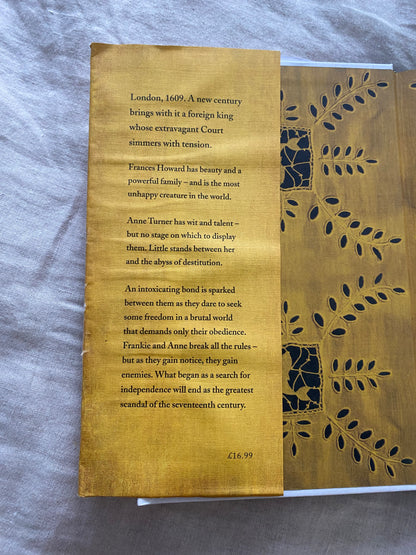 London, 1609. A new century
brings with it a foreign king
whose extravagant Court
simmers with tension.
Frances Howard has beauty and a
powerful family – and is the most
unhappy creature in the world.
Anne Turner has wit and talent –
but no stage on which to display
them. Little stands between her
and the abyss of destitution.
An intoxicating bond is sparked
between them as they dare to seek
some freedom in a brutal world
that demands only their obedience.
Frankie and Anne break all the rules –
but as they gain notice, they gain
enemies. What began as a search for
independence will end as the greatest
scandal of the seventeenth century.
£16.99